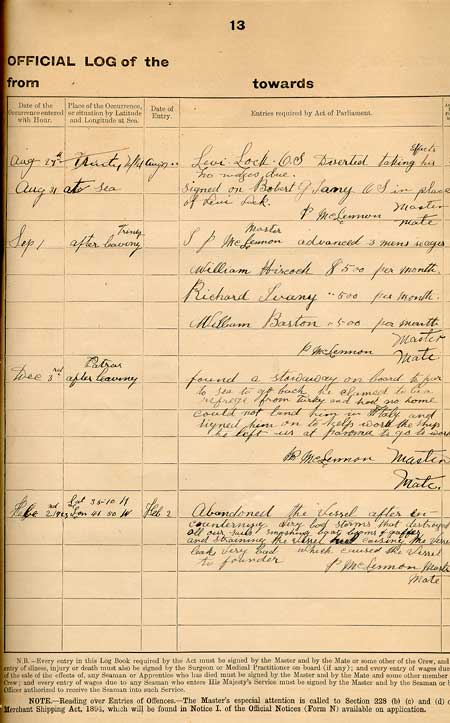 13
OFFICIAL LOG of the
from towards
Date of the Occurrence entered with Hour.
Place of the Occurrence, or situation by Latitude and Longitude at Sea.
Date of Entry.
Entries required by Act of Parliament.
Aug 27th Trinity, Levi Lock O.S Diserted taking his effects
no wages due.
Aug 31 at sea signed on Robert G O.S in place
of Levi Lock.
P McLennon Master
Mate
Sep 1 after leaving Trinity I P McLennon Master advanced 3 mens wages
William Hiscock $ 5.00 per month.
Richard " 5.00 per month.
William Barton " 5.00 per month
P McLennon Master
Mate
Dec 3rd after leaving Patras found a stowaway on board to fur
to sea to go back he clamed to be a
from Turky and had no home
could not land him in Italy and
signed him on to help work the ship
he left us at to go to work
P McLennon Master
Mate.
Feb 2nd Lat 35-10 N
Lon 41 50 W Feb 2 Abandoned the Vessel after en-
countering very bad storms that destroyed
all our sails smashing boat booms & gaffs
and straining the vessel causing the vessel
leak very bad which caused the vessel
to founder P McLennon Master
Mate
N.B.—Every entry in this Log Book required by the Act must be signed by the Master and by the Mate or some other of the Crew, and
entry of illness, injury or death must also be signed by the Surgeon or Medical Practitioner on board (if any); and every entry of wages due
of the sale of the effects of, any Seaman or Apprentice who has died must be signed by the Master and by the Mate and some other member
Crew; and every entry of wages due to any Seaman who enters His Majesty's Service must be signed by the Master and by the Seaman or b
Officer authorized to receive the Seaman into such Service.
NOTE.—Reading over Entries of Offences.—The Master's especial attention is called to Section 228 (b) (c) and (d)
Merchant Shipping Act, 1894, which will be found in Notice I. of the Official Notices (Form N) available on application.